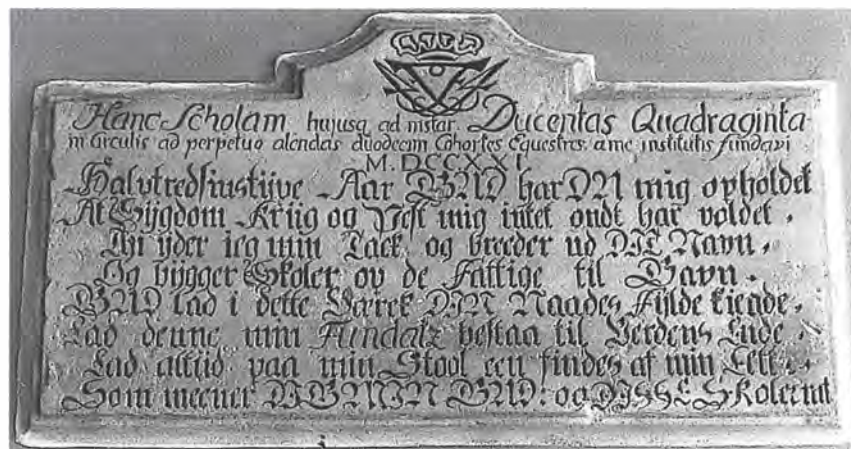 Hanc Scholam hujusq ad instar Ducentas Quadraginta
in circulis ad perpetuo alendas duodecim Cohortes Equestres a me institutis fundavi
M.DCCXXI.
Halvtredsinstijve Aar GUD har DU mig opholdet
At Sÿgdom Kriig og Pest mig intet ondt har voldet.
Thi ÿder ieg min Tack og breeder ud DIT Navn.
Og bÿgger Skoler op de Fattige til Gavn.
GUD lad i dette Værck DIN Naades Fylde kiende.
Lad denne min Fundatz bestaa til Verdens Ende.
Lad altiid paa min Stool een findes af min Ætt.
Som meener DIG MIN GUD: og DISSE Skoler ret